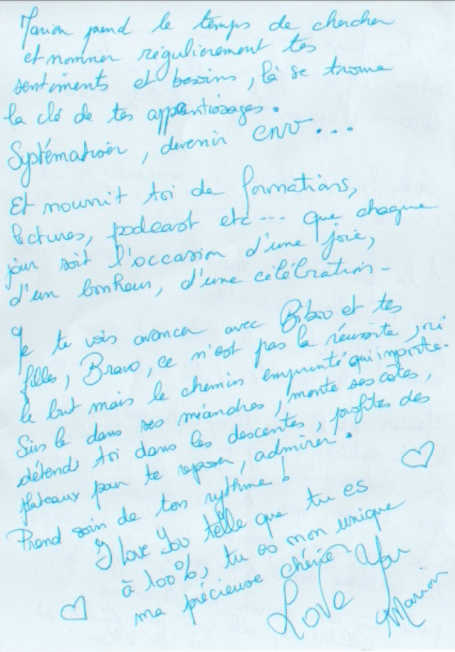 Marion prend le temps de chercher
et nommer régulièrement tes
sentiments et besoins, là se trouve
la clé de tes apprentissages.
Systématiser, devenir CNV...
Et nourrit toi de formations,
lectures, podcast etc... que chaque
jour soit l'occasion d'une joie,
d'un bonheur, d'une célébration -
Je te vois avancer avec et tes
filles, Bravo, ce n'est pas la réussite, ni
le but mais le chemin emprunté qui importe.
Suis le dans ses méandres, monte ses côtes,
détend toi dans les descentes, profites des
plateaux pour te reposer, admirer.
Prend soin de ton rythme !
I love You telle que tu es
à 100%, tu es mon unique
ma précieuse chérie
Love You
Marion